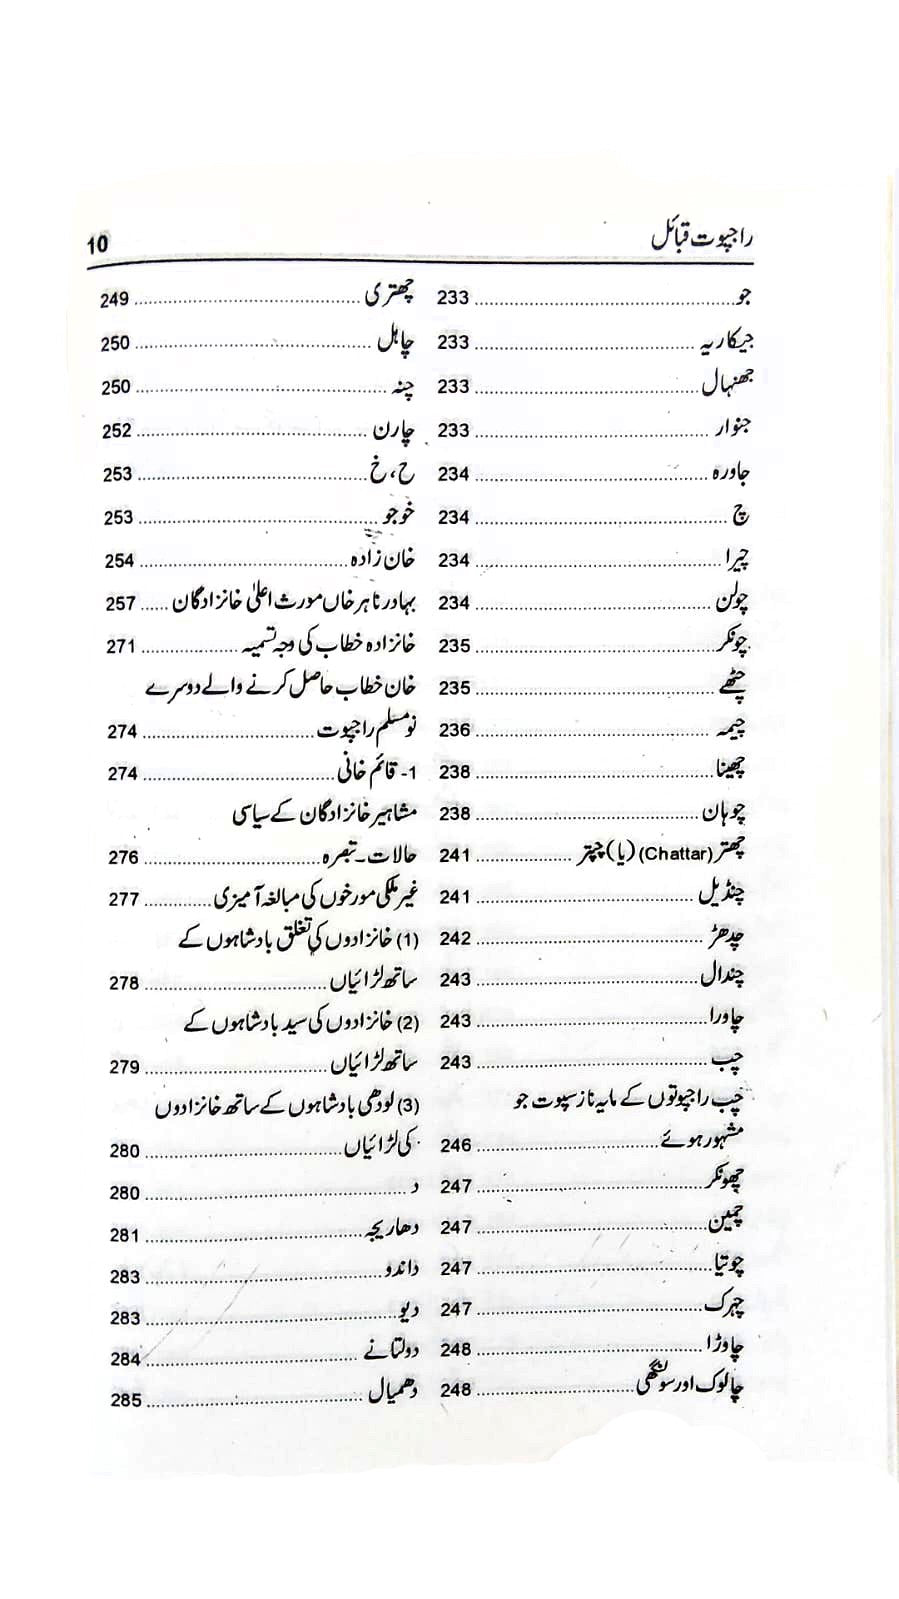 راجپوت قبائل 10
جو 233
جیکاریہ 233
جھنہال 233
جنوار 233
جاورہ 234
چ 234
چیرا 234
چولن 234
چونکر 235
چٹھے 235
چیمہ 236
چھینا 238
چوہان 238
چھتر (Chattar) (یا) چہتر 241
چنڈیل 241
چدھڑ 242
چندال 243
چاورا 243
چب 243
چب راجپوتوں کے مایہ ناز سپوت جو
مشہور ہوئے 246
چھونکر 247
چمین 247
چوتیا 247
چہرک 247
چاوڑا 248
چالوک اور سولنگھی 248
چھتری 249
چاہل 250
چنہ 250
چارن 252
ح، خ 253
خوجو 253
خان زادہ 254
بہادر ناہر خاں مورث اعلیٰ خانزادگان 257
خانزادہ خطاب کی وجہ تسمیہ 271
خان خطاب حاصل کرنے والے دوسرے
نو مسلم راجپوت 274
1- قائم خانی 274
مشاہیر خانزادگان کے سیاسی
حالات۔ تبصرہ 276
غیر ملکی مورخوں کی مبالغہ آمیزی 277
(1) خانزادوں کی تغلق بادشاہوں کے
ساتھ لڑائیاں 278
(2) خانزادوں کی سید بادشاہوں کے
ساتھ لڑائیاں 279
(3) لودھی بادشاہوں کے ساتھ خانزادوں
کی لڑائیاں 280
د 280
دھاریجہ 281
داندو 283
دیو 283
دولتانے 284
دھمیال 285